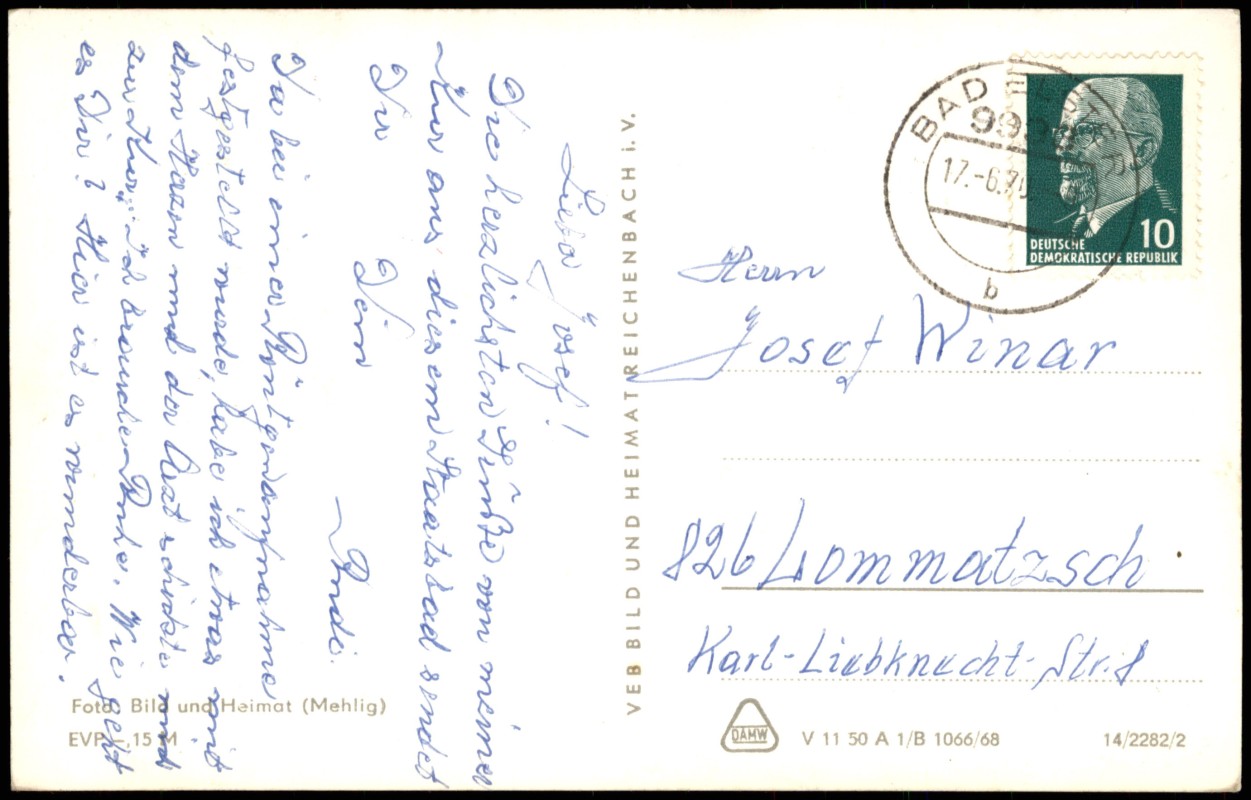 Lieber Josef!
Die herzlichsten Grüße von meiner
Kur aus diesem Staatsbad sendet
Dir Dein
Rudi.
Da bei einer Röntgenaufnahme
festgestellt wurde, habe ich etwas mit
dem Herzen und der Arzt schickte mich
zur Kur. Ich brauche Ruhe. Wie geht
es Dir? Hier ist es wunderbar.
VEB BILD UND HEIMAT REICHENBACH i. V.
BAD
17.-6.70
b
10
DEUTSCHE
DEMOKRATISCHE REPUBLIK
Herrn
Josef Winar
826 Lommatzsch
Karl-Liebknecht-Str. 8
Foto: Bild und Heimat (Mehlig)
EVP -,15 M
DAMW
V 11 50 A 1/B 1066/68
14/2282/2